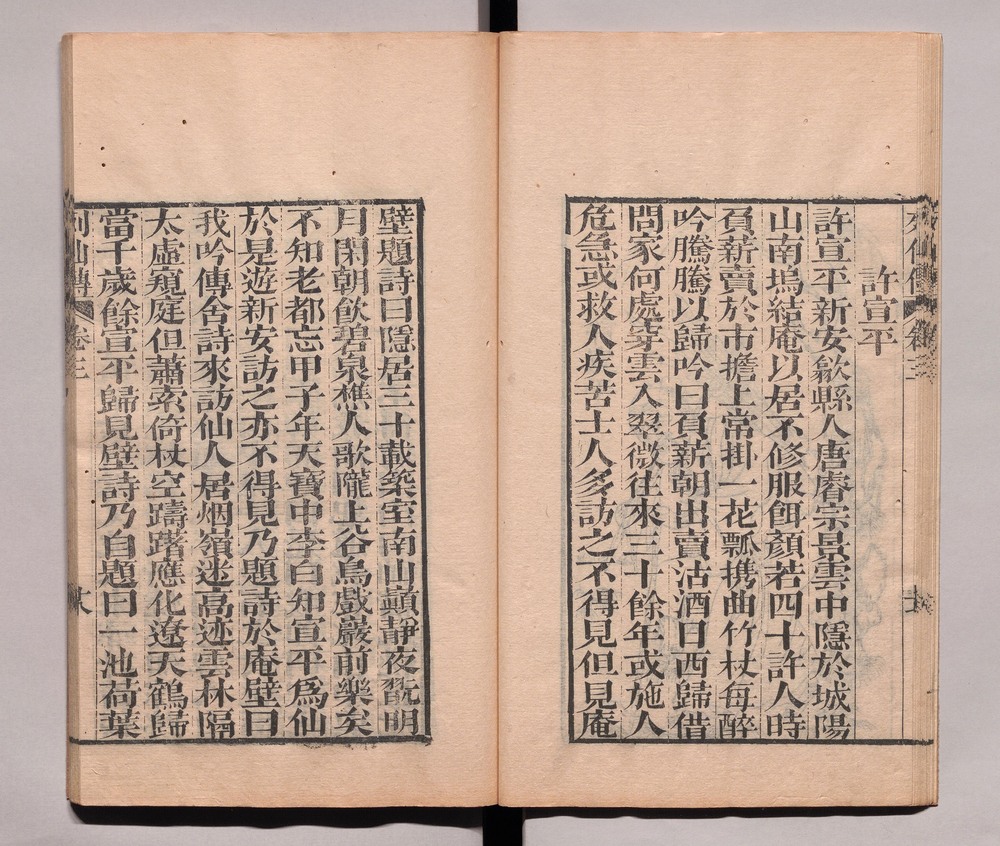 許宣平
許宣平新安歙縣人唐睿宗景雲中隱於城陽
山南塢結庵以居不修服餌顏若四十許人時
負薪賣於市擔上常掛一花瓢携曲竹杖每醉
吟騰騰以歸吟曰負薪朝出賣沽酒日西歸借
問家何處穿雲入翠微往來三十餘年或施人
危急或救人疾苦士人多訪之不得見但見庵
壁題詩曰隱居三十載築室南山巔靜夜翫明
月閑朝飲碧泉樵人歌隴上谷鳥戲巖前樂矣
不知老都忘甲子年天寶中李白知宣平爲仙
於是遊新安訪之亦不得見乃題詩於庵壁曰
我吟傳舍詩來訪仙人居烟嶺迷高迹雲林隔
太虛窺庭但蕭索倚杖空躊躇應化遼天鶴歸
當千歲餘宣平歸見壁詩乃自題曰一池荷葉
列仙傳 卷三